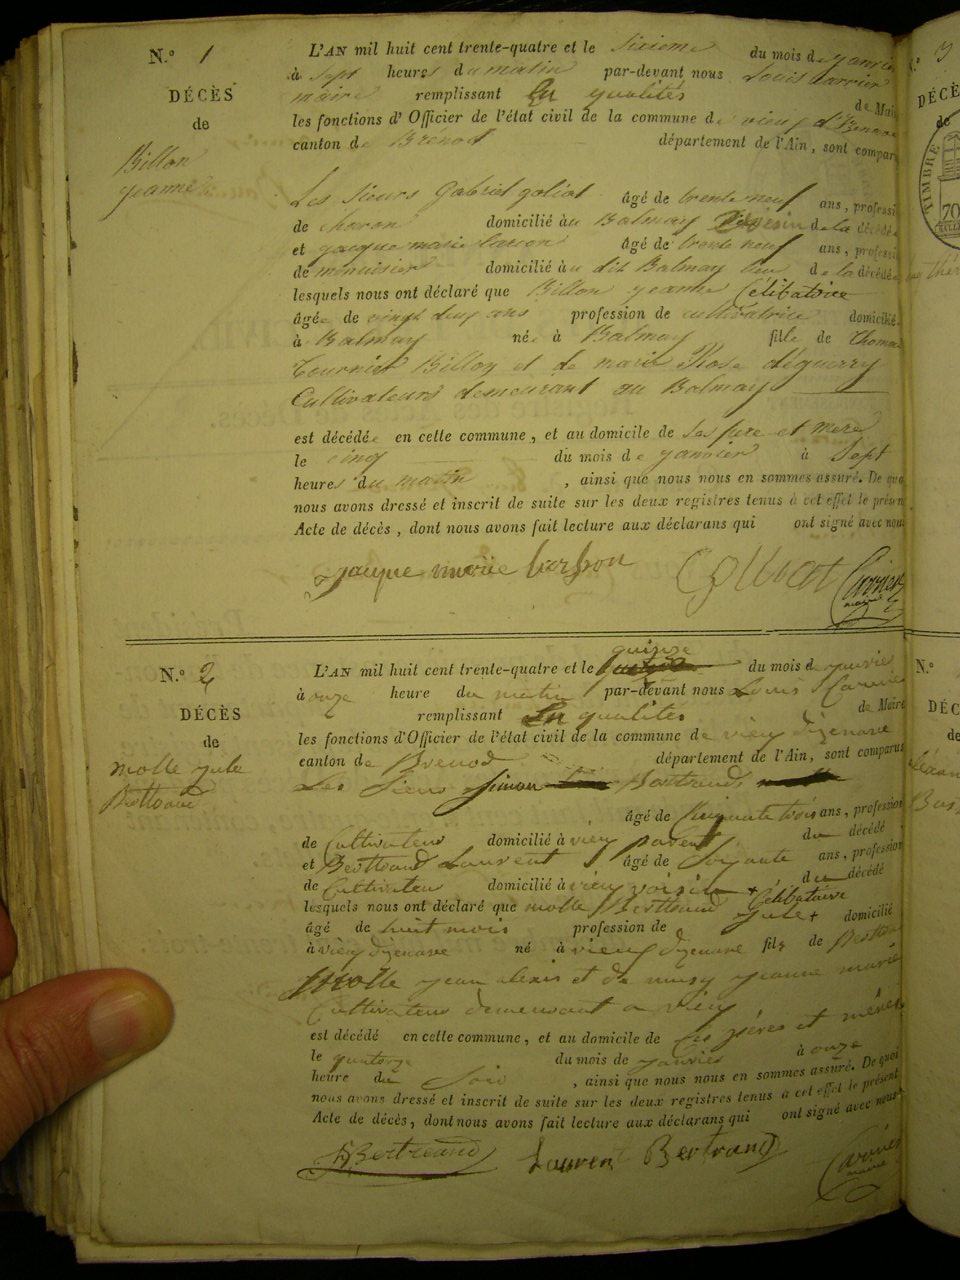 N.º 1
DÉCÈS
de
Billon
jeanne
L'AN mil huit cent trente-quatre et le sixieme du mois de janvier
à sept heures du matin par-devant nous Louis Carrier
maire remplissant En qualités de Mai
les fonctions d'Officier de l'état civil de la commune de vieu d'Izenave
canton de Brénod département de l'Ain, sont compar
Les sieurs Gabriel goliat âgé de trente neuf ans, professi
de charon domicilié au Balmay voisin de la décédé
et jacque marie âgé de trente neuf ans, professi
de menuisier domicilié au dit Balmay de la décédé
lesquels nous ont déclaré que Billon jeanne Célibatoire
âgée de vingt deux ans profession de cultivatrice domicilié
à Balmay né à Balmay fille de Thomas
tournier Billon et de marie Rose
Cultivateurs demeurant au Balmay
est décédée en cette commune, et au domicile de ses pere et mere
le cinq du mois de janvier à sept
heures du matin, ainsi que nous nous en sommes assuré. De quo
nous avons dressé et inscrit de suite sur les deux registres tenus à cet effet le présen
Acte de décès, dont nous avons fait lecture aux déclarans qui ont signé avec nous
jacque marie Goliat Carrier
maire
N.º 2
DÉCÈS
de
molle jule
Berttrand
quinze
L'AN mil huit cent trente-quatre et le du mois de janvie
à onze heure du matin par-devant nous Louis Carrier
remplissant En qualités de Maire
les fonctions d'Officier de l'état civil de la commune de vieu dizenave
canton de Brenod département de l'Ain, sont comparus
Les Sieurs Simon Berttrand
âgé de Cinquante trois ans, profession
de Cultivateur domicilié à vieu parent du décédé
et Berttrand Laurent âgé de Soixante ans, profession
de Cultivateur domicilié à vieu voisin du décédé
lesquels nous ont déclaré que molle Berttrand jule + + Célibataire
âgé de huit mois profession de domicilié
à vieu dizenave né à vieu dizenave fils de Berttra
molle jean alexis et de jeanne marie
Cultivateurs demeurant a vieu
est décédé en cette commune, et au domicile de ses pères et mères
le quatorze du mois de janvier à onze
heure du Soir, ainsi que nous nous en sommes assuré. De quoi
nous avons dressé et inscrit de suite sur les deux registres tenus à cet effet le présent
Acte de décès, dont nous avons fait lecture aux déclarans qui ont signé avec nous
SBertrand Laurent Bertrand Carrier
maire
DÉCÈS
de
TIMBRE
70
N.º
DÉC
de